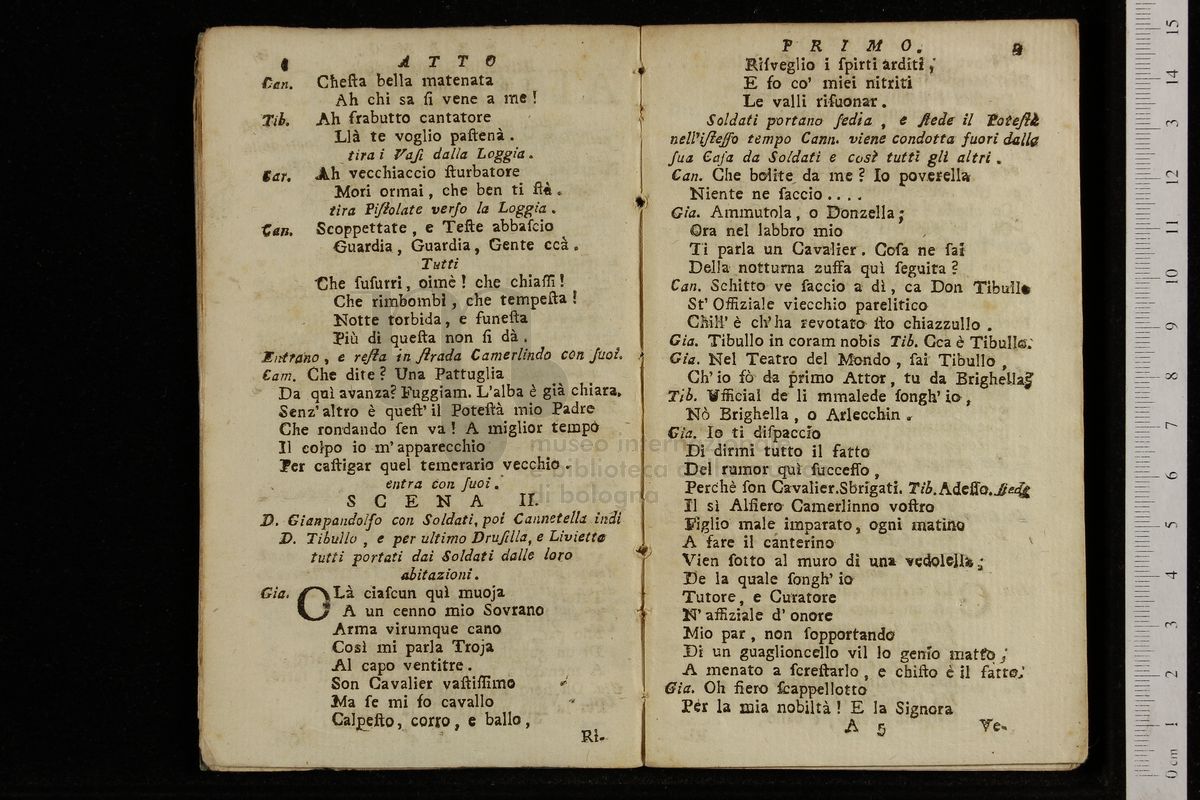 ATTO
Can. Cheſta bella matenata
Ah chi sa ſi vene a me!
Tib. Ah frabutto cantatore
Llà te voglio paſtenà.
tira i Vaſi dalla Loggia.
Car. Ah vecchiaccio ſturbatore
Mori ormai, che ben ti ſtà.
tira Piſtolate verſo la Loggia.
Can. Scoppettate, e Teſte abbaſcio
Guardia, Guardia, Gente ccà.
Tutti
Che ſuſurri, oimè! che chiaſſi!
Che rimbombi, che tempeſta!
Notte torbida, e funeſta
Più di queſta non ſi dà.
Entrano, e reſta in ſtrada Camerlindo con ſuoi.
Cam. Che dite? Una Pattuglia
Da quì avanza? Fuggiam. L'alba è già chiara,
Senz' altro è queſt' il Poteſtà mio Padre
Che rondando ſen va! A miglior tempo
Il colpo io m' apparecchio
Per caſtigar quel temerario vecchio.
entra con ſuoi.
SCENA II.
D. Gianpandolfo con Soldati, poi Cannetella indi
D. Tibullo, e per ultimo Druſilla, e Livietta
tutti portati dai Soldati dalle loro
abitazioni.
Gia. OLà ciaſcun quì muoja
A un cenno mio Sovrano
Arma virumque cano
Così mi parla Troja
Al capo ventitre.
Son Cavalier vaſtiſſimo
Ma ſe mi fo cavallo
Calpeſto, corro, e ballo,
Ri-
PRIMO. 9
Riſveglio i ſpirti arditi,
E fo co' miei nitriti
Le valli riſuonar.
Soldati portano ſedia, e ſiede il Poteſtà
nell'iſteſſo tempo Cann. viene condotta fuori dalla
ſua Caſa da Soldati e così tutti gli altri.
Can. Che bolite da me? Io poverella
Niente ne faccio....
Gia. Ammutola, o Donzella;
Ora nel labbro mio
Ti parla un Cavalier. Coſa ne ſai
Della notturna zuffa quì ſeguita?
Can. Schitto ve faccio a dì, ca Don Tibullo
St' Offiziale viecchio parelitico
Chill' è ch'ha revotato ſto chiazzullo.
Gia. Tibullo in coram nobis Tib. Cca è Tibullo.
Gia. Nel Teatro del Mondo, ſai Tibullo,
Ch' io fò da primo Attor, tu da Brighella?
Tib. Ufficial de li mmalede ſongh' io,
Nò Brighella, o Arlecchin.
Gia. Io ti diſpaccio
Di dirmi tutto il fatto
Del rumor quì ſucceſſo,
Perchè ſon Cavalier. Sbrigati. Tib. Adeſſo. ſiede
Il sì Alfiero Camerlinno voſtro
Figlio male imparato, ogni matino
A fare il canterino
Vien ſotto al muro di una vedolella;
De la quale ſongh' io
Tutore, e Curatore
N' affiziale d' onore
Mio par, non ſopportando
Di un guaglioncello vil lo genio matto;
A menato a ſcreſtarlo, e chiſto è il fatto.
Gia. Oh fiero ſcappellotto
Per la mia nobiltà! E la Signora
A 5 Ve-
museo internazionale
e biblioteca della musica
di bologna
0 cm 1 2 3 4 5 6 7 8 9 10 11 12 13 14 15